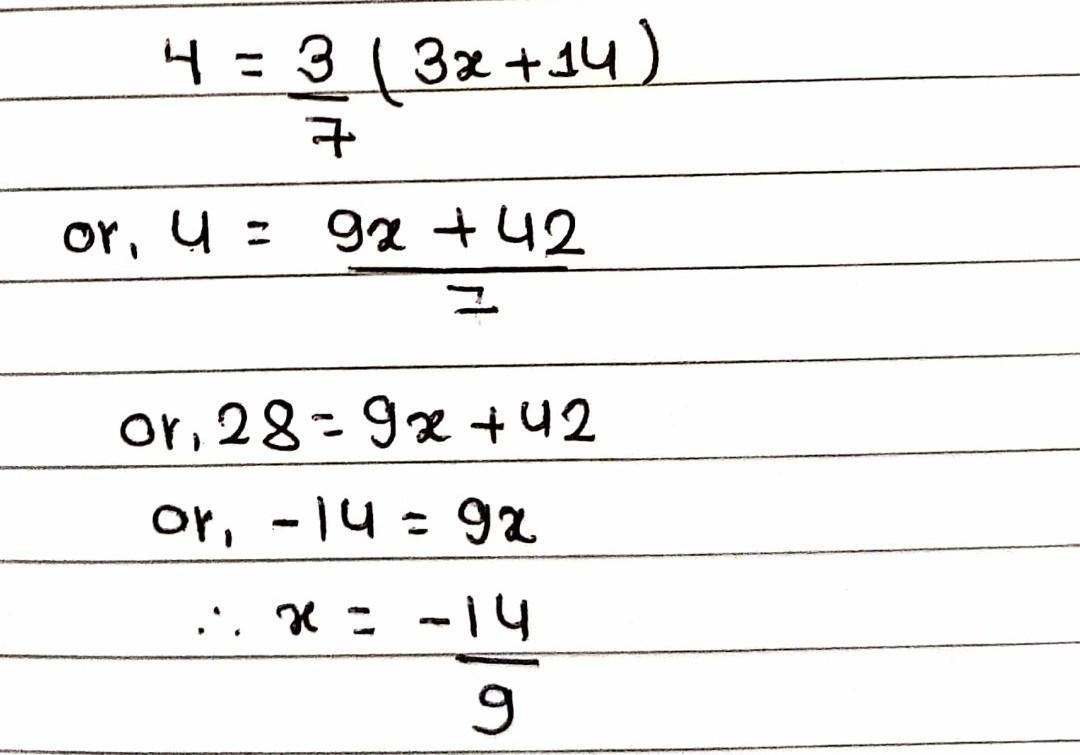 4 = 3/7 (3x + 14)
or, 4 = (9x + 42)/7
or, 28 = 9x + 42
or, -14 = 9x
∴ x = -14/9